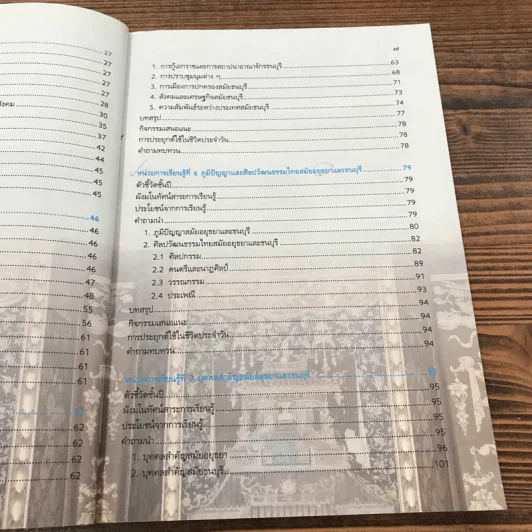 27
27
27
27
27
28
30
35
37
42
44
45
45
45
46
46
46
46
47
48
55
56
61
61
61
61
62
62
62
62
62
๗
1. การกู้เอกราชและการสถาปนาอาณาจักรธนบุรี 63
2. การปราบชุมนุมต่าง ๆ 68
3. การเมืองการปกครองสมัยธนบุรี 71
4. สังคมและเศรษฐกิจสมัยธนบุรี 73
5. ความสัมพันธ์ระหว่างประเทศสมัยธนบุรี 74
บทสรุป 77
กิจกรรมเสนอแนะ 78
การประยุกต์ใช้ในชีวิตประจำวัน 78
คำถามทบทวน 78
หน่วยการเรียนรู้ที่ 6 ภูมิปัญญาและศิลปวัฒนธรรมไทยสมัยอยุธยาและธนบุรี 79
ตัวชี้วัดชั้นปี 79
ผังมโนทัศน์สาระการเรียนรู้ 79
ประโยชน์จากการเรียนรู้ 79
คำถามนำ 79
1. ภูมิปัญญาสมัยอยุธยาและธนบุรี 80
2. ศิลปวัฒนธรรมไทยสมัยอยุธยาและธนบุรี 82
2.1 ศิลปกรรม 82
2.2 ดนตรีและนาฏศิลป์ 89
2.3 วรรณกรรม 91
2.4 ประเพณี 93
บทสรุป 94
กิจกรรมเสนอแนะ 94
การประยุกต์ใช้ในชีวิตประจำวัน 94
คำถามทบทวน 94
หน่วยการเรียนรู้ที่ 7 บุคคลสำคัญสมัยอยุธยาและธนบุรี 95
ตัวชี้วัดชั้นปี 95
ผังมโนทัศน์สาระการเรียนรู้ 95
ประโยชน์จากการเรียนรู้ 95
คำถามนำ 95
1. บุคคลสำคัญสมัยอยุธยา 96
2. บุคคลสำคัญสมัยธนบุรี 101